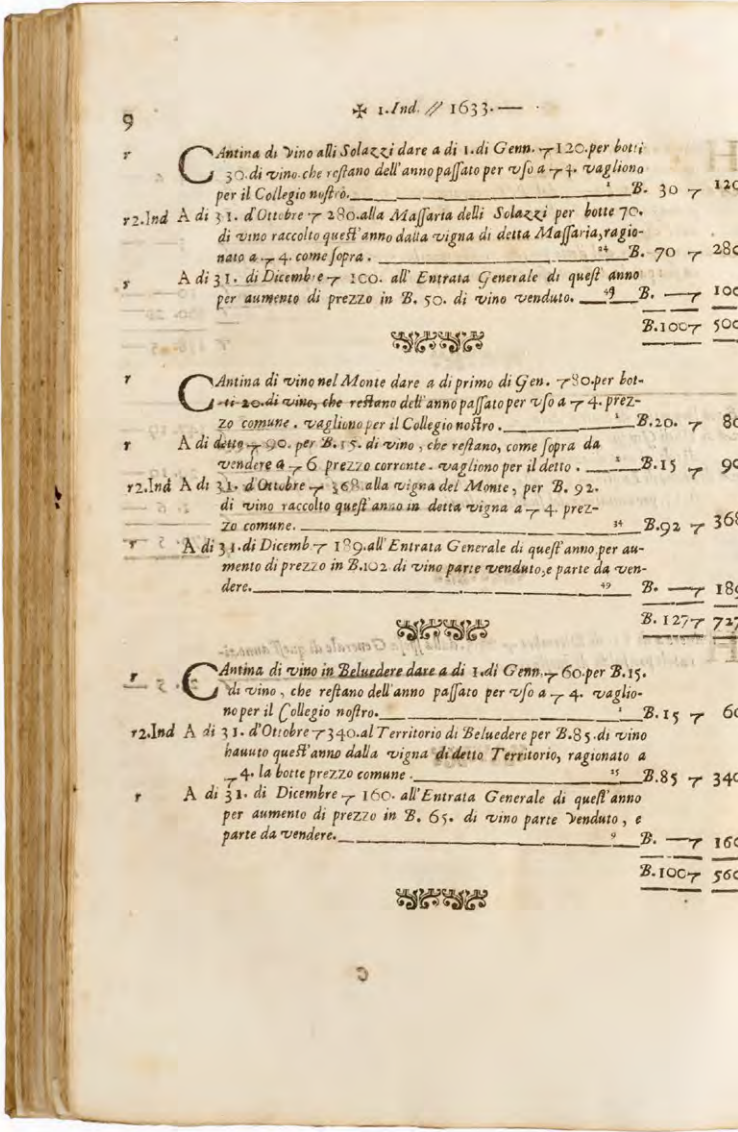 9
✠ 1.Ind. // 1633.—
r CAntina di Vino alli Solazzi dare a di 1.di Genn. ⁊120.per botti
30.di vino.che restano dell'anno passato per vso a ⁊ 4. vagliono
per il Collegio nostro. 2 B. 30 ⁊ 120
r2.Ind A di 31. d'Ottobre ⁊ 280.alla Massaria delli Solazzi per botte 70.
di vino raccolto quest'anno dalla vigna di detta Massaria,ragio-
nato a ⁊ 4. come sopra. 24 B. 70 ⁊ 280
r A di 31. di Dicembre ⁊ 100. all' Entrata Generale di quest' anno
per aumento di prezzo in B. 50. di vino venduto. 49 B. — ⁊ 100
B.100⁊ 500
r CAntina di vino nel Monte dare a di primo di Gen. ⁊80.per bot-
ti 20.di vino, che restano dell'anno passato per vso a ⁊ 4. prez-
zo comune. vagliono per il Collegio nostro. 2 B.20. ⁊ 80
r A di detto ⁊ 90. per B.15. di vino, che restano, come sopra da
vendere a ⁊ 6 prezzo corrente. vagliono per il detto. 2 B.15 ⁊ 90
r2.Ind A di 31. d'Ottobre ⁊ 368.alla vigna del Monte, per B. 92.
di vino raccolto quest'anno in detta vigna a ⁊ 4. prez-
zo comune. 34 B.92 ⁊ 368
r A di 31.di Dicemb ⁊ 189.all'Entrata Generale di quest'anno per au-
mento di prezzo in B.102 di vino parte venduto,e parte da ven-
dere. 49 B. — ⁊ 189
B. 127⁊ 727
r CAntina di vino in Beluedere dare a di 1.di Genn. ⁊ 60.per B.15.
di vino, che restano dell'anno passato per vso a ⁊ 4. vaglio-
no per il Collegio nostro. 2 B.15 ⁊ 60
r2.Ind A di 31. d'Ottobre ⁊340.al Territorio di Beluedere per B.85.di vino
hauuto quest'anno dalla vigna di detto Territorio, ragionato a
⁊ 4. la botte prezzo comune. 25 B.85 ⁊ 340
r A di 31. di Dicembre ⁊ 160. all'Entrata Generale di quest'anno
per aumento di prezzo in B. 65. di vino parte Venduto, e
parte da vendere. 9 B. — ⁊ 160
B.100⁊ 560
C